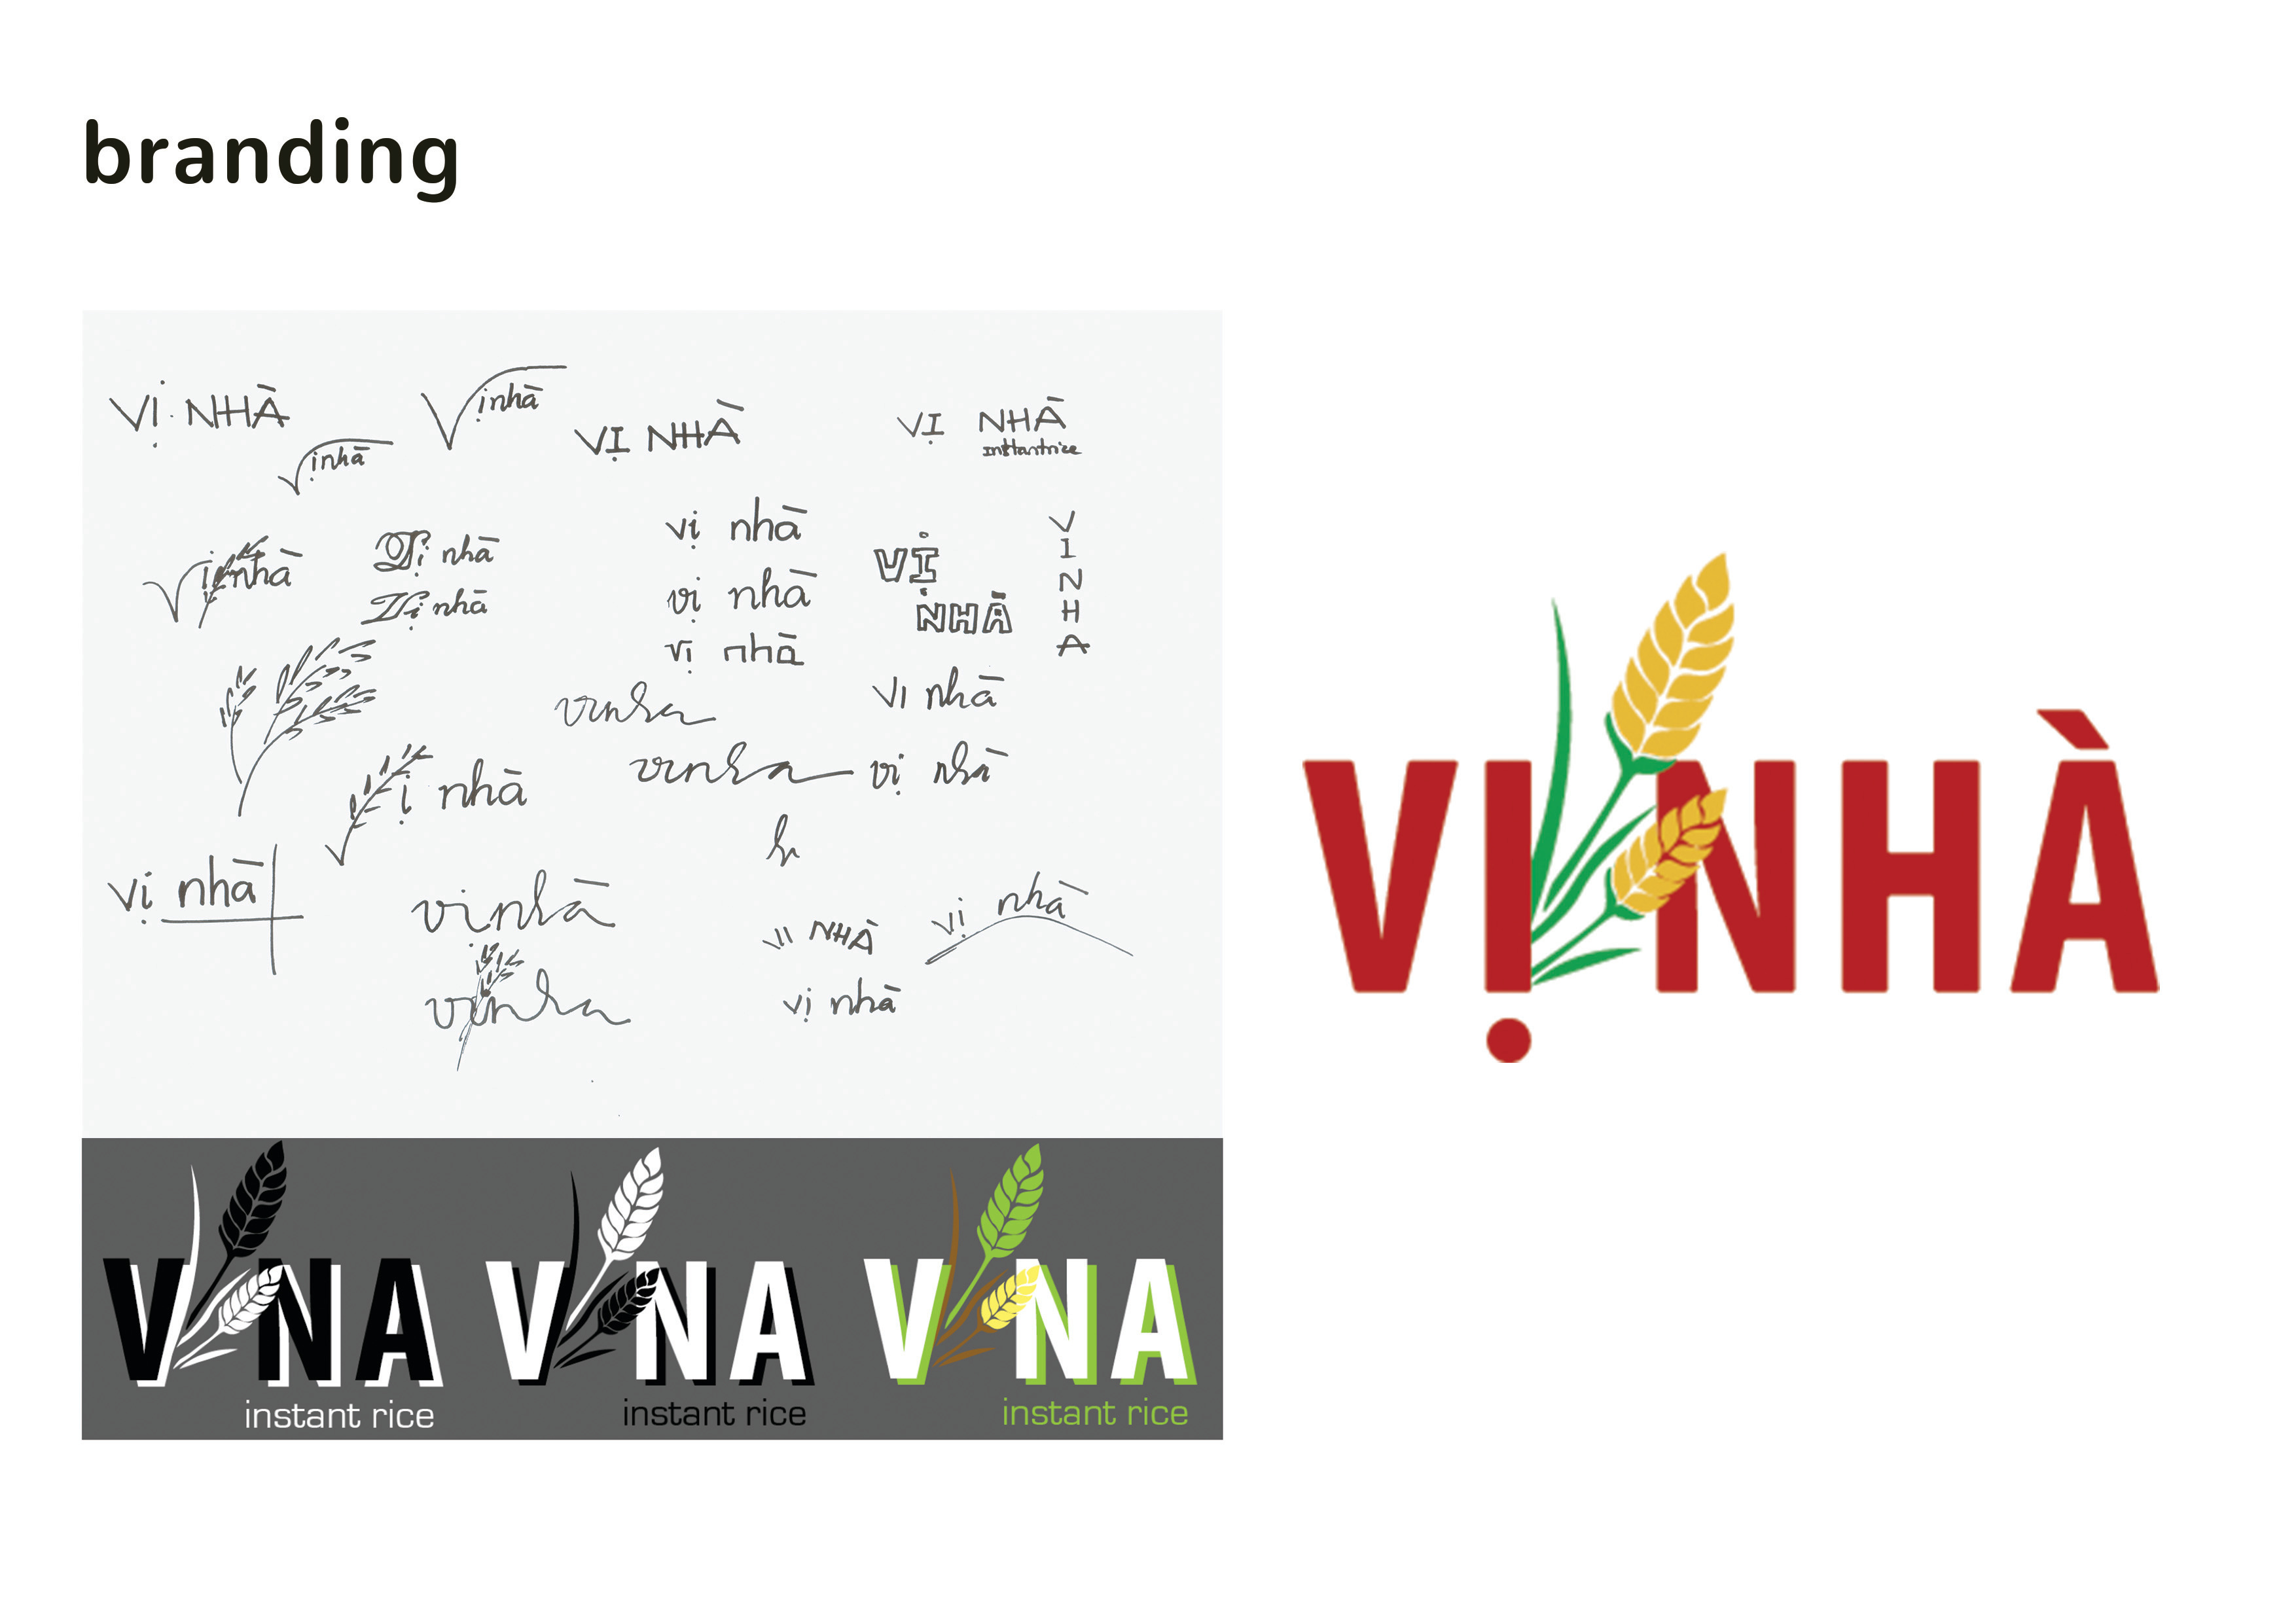 branding
VỊ NHÀ
Vịnhà
Vịnhà
VỊ NHÀ
VỊ NHÀ
instantrice
Vịnhà
Vị nhà
Vị nhà
vị nhà
vị nhà
vị nhà
VỊ
NHÀ
VINHA
vinha
vinha
vi nhà
vị nhà
Vị nhà
h
vị nhà
vinhà
vinha
VI NHÀ
vị nhà
vi nhà
VỊNHÀ
V NA
instant rice
V NA
instant rice
V NA
instant rice